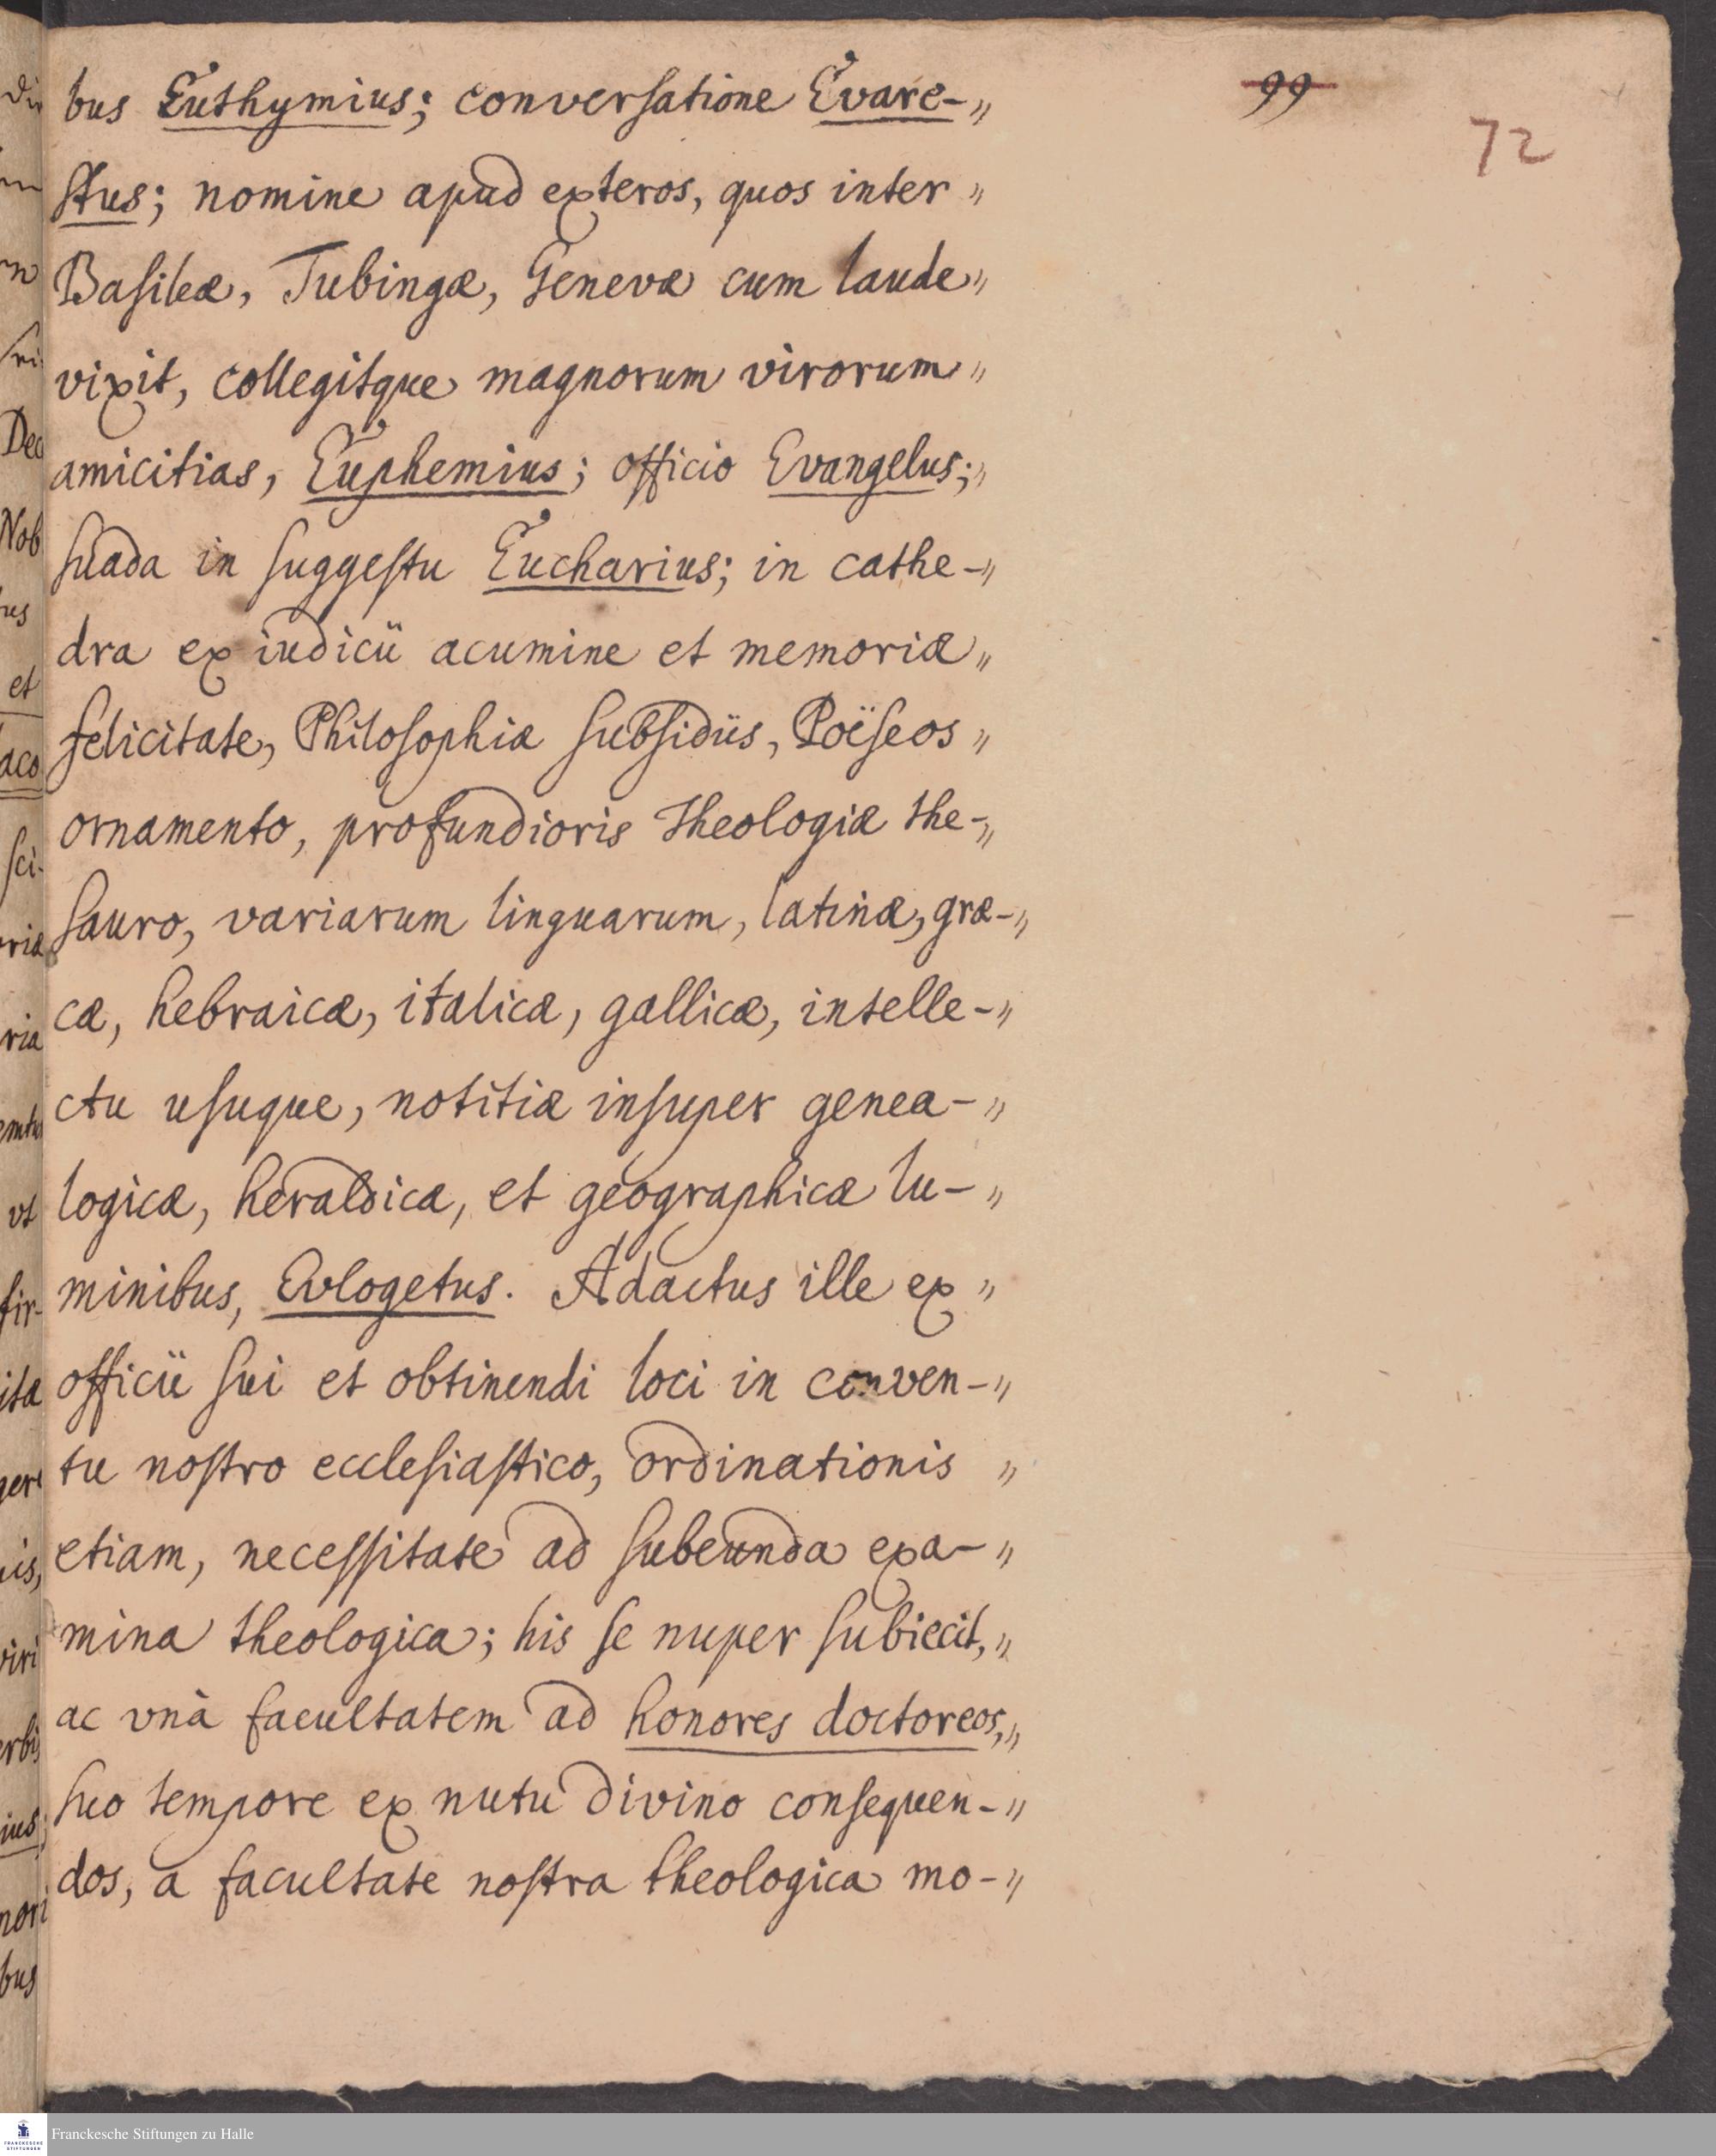 99
72
bus Euthymius; conversatione Evare-"
stus; nomine apud exteros, quos inter "
Basileæ, Tubingæ, Genevæ cum laude "
vixit, collegitque magnorum virorum "
amicitias, Euphemius; officio Evangelus; "
suada in suggestu Eucharius; in cathe-"
dra ex iudicii acumine et memoriæ "
felicitate, Philosophiæ subsidiis, Poëseos "
ornamento, profundioris theologiæ the-"
sauro, variarum linguarum, latinæ, græ-"
cæ, hebraicæ, italicæ, gallicæ, intelle-"
ctu usuque, notitiæ insuper genea-"
logicæ, heraldicæ, et geographicæ lu-"
minibus, Evlogetus. Adactus ille ex "
officii sui et obtinendi loci in conven-"
tu nostro ecclesiastico, ordinationis "
etiam, necessitate ad subeunda exa-"
mina theologica; his se nuper subiecit, "
ac vnà facultatem ad honores doctoreos, "
suo tempore ex nutu divino consequen-"
dos, a facultate nostra theologica mo-"
Franckesche Stiftungen zu Halle